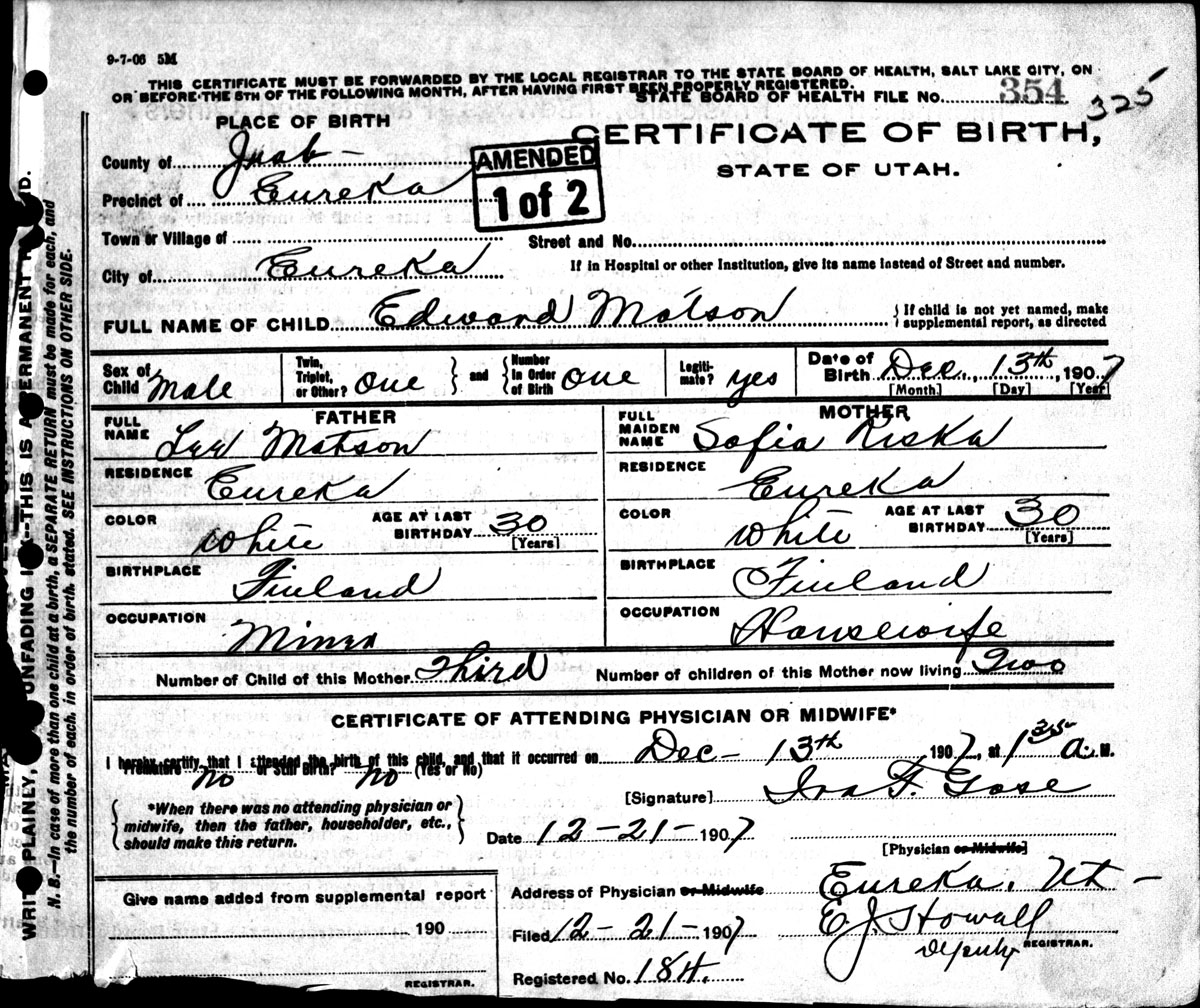 9-7-06 5M
THIS CERTIFICATE MUST BE FORWARDED BY THE LOCAL REGISTRAR TO THE STATE BOARD OF HEALTH, SALT LAKE CITY, ON
OR BEFORE THE 5TH OF THE FOLLOWING MONTH, AFTER HAVING FIRST BEEN PROPERLY REGISTERED.
STATE BOARD OF HEALTH FILE No. 354 325
PLACE OF BIRTH
CERTIFICATE OF BIRTH,
STATE OF UTAH.
County of Juab
AMENDED
1 of 2
Precinct of Eureka
Town or Village of
Street and No.
City of Eureka
If in Hospital or other Institution, give its name instead of Street and number.
FULL NAME OF CHILD Edward Matson
{ If child is not yet named, make
supplemental report, as directed
Sex of Child Male
Twin, Triplet, or Other? One } and { Number in Order of Birth One
Legitimate? yes
Date of Birth Dec, 13th, 1907
[Month] [Day] [Year]
FATHER
FULL NAME Matson
RESIDENCE Eureka
COLOR White AGE AT LAST BIRTHDAY 30
[Years]
BIRTHPLACE Finland
OCCUPATION Miner
MOTHER
FULL MAIDEN NAME Sofia Riska
RESIDENCE Eureka
COLOR White AGE AT LAST BIRTHDAY 30
[Years]
BIRTHPLACE Finland
OCCUPATION Housewife
Number of Child of this Mother Third Number of children of this Mother now living Two
CERTIFICATE OF ATTENDING PHYSICIAN OR MIDWIFE*
I hereby certify that I attended the birth of this child, and that it occurred on Dec- 13th, 1907, at 1 35 a. M.
Premature No or Still Birth? No (Yes or No)
[Signature] Ira F. Gose
{ *When there was no attending physician or
midwife, then the father, householder, etc.,
should make this return. }
Date 12-21-1907
[Physician or Midwife]
Give name added from supplemental report
190
REGISTRAR.
Address of Physician or Midwife Eureka, Ut-
Filed 12-21-1907 E.J. Howall
Deputy REGISTRAR.
Registered No. 184.
WRITE PLAINLY, UNFADING THIS IS A PERMANENT
N. B.—In case of more than one child at a birth, a SEPARATE RETURN must be made for each, and
the number of each, in order of birth, stated. SEE INSTRUCTIONS ON OTHER SIDE.